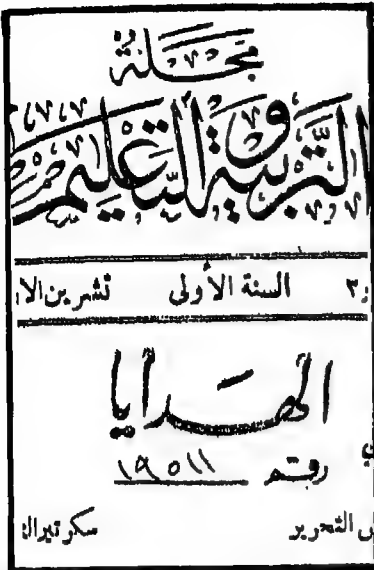 مجلة
التربية والتعليم
٢ السنة الأولى تشرين الا
الهدايا
رقم ١٩٥١١
التحرير سكرتير